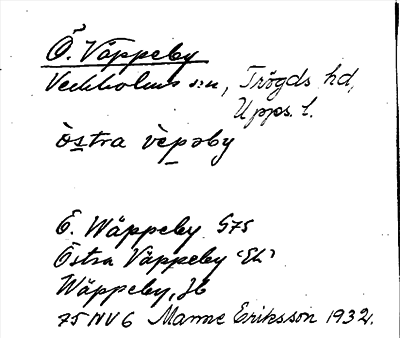 Ö. Väppeby
Veckholms sn, Trögds hd,
Upps. l.
östra vèpəby
Ö. Wäppeby G75
Östra Väppeby "Ek"
Wäppeby, Jb
75 NV 6 Manne Eriksson 1932.